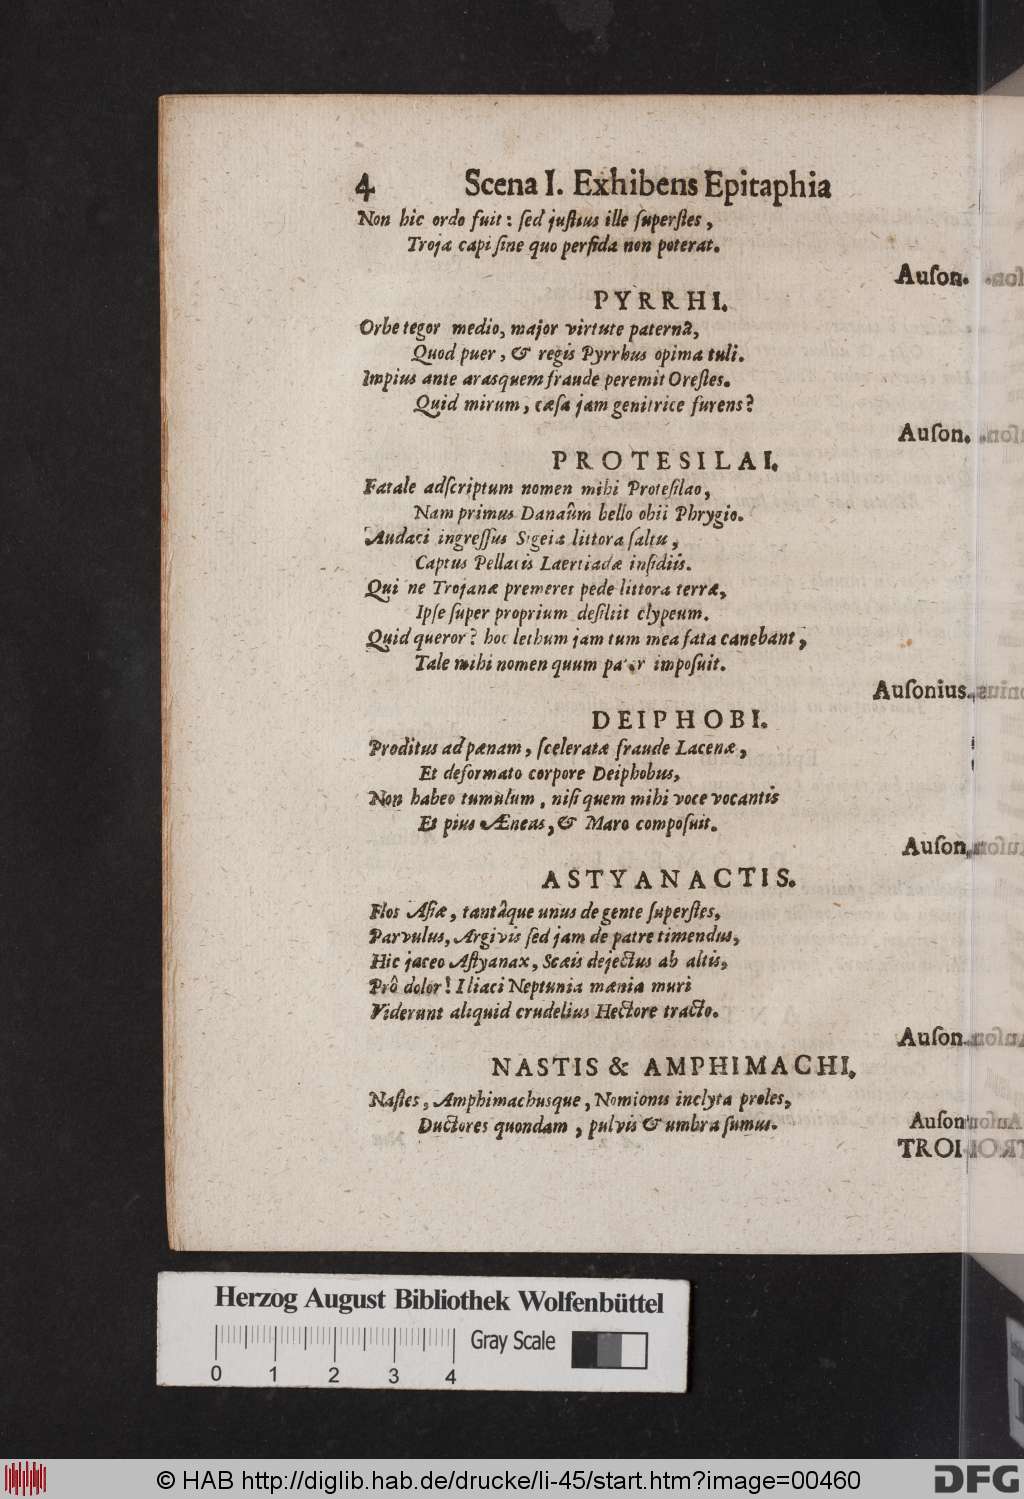 4 Scena I. Exhibens Epitaphia
Non hic ordo fuit: ſed juſtius ille ſuperſtes,
Troja capi ſine quo perfida non poterat.
Auſon.
PYRRHI.
Orbe tegor medio, major virtute paternâ,
Quod puer, & regis Pyrrhus opima tuli.
Impius ante aras quem fraude peremit Oreſtes.
Quid mirum, cæſa jam genitrice furens?
Auſon.
PROTESILAI.
Fatale adſcriptum nomen mihi Proteſilao,
Nam primus Danaûm bello obii Phrygio.
Audaci ingreſſus Sigeia littora ſaltu,
Captus Pellacis Laertiadæ inſidiis.
Qui ne Trojanæ premeret pede littora terræ,
Ipſe ſuper proprium deſiliit clypeum.
Quid queror? hoc lethum jam tum mea fata canebant,
Tale mihi nomen quum pater impoſuit.
Auſonius.
DEIPHOBI.
Proditus ad pænam, ſceleratæ fraude Lacenæ,
Et deformato corpore Deiphobus,
Non habeo tumulum, niſi quem mihi voce vocantis
Et pius Æneas, & Maro compoſuit.
Auſon.
ASTYANACTIS.
Flos Aſiæ, tantâque unus de gente ſuperſtes,
Parvulus, Argivis ſed jam de patre timendus,
Hic jaceo Aſtyanax, Scæis dejectus ab altis,
Prô dolor! Iliaci Neptunia mænia muri
Viderunt aliquid crudelius Hectore tracto.
Auſon.
NASTIS & AMPHIMACHI.
Naſtes, Amphimachusque, Nomionis inclyta proles,
Ductores quondam, pulvis & umbra ſumus.
Auſon
TROI-
Herzog August Bibliothek Wolfenbüttel
Gray Scale
0 1 2 3 4
© HAB http://diglib.hab.de/drucke/li-45/start.htm?image=00460
DFG